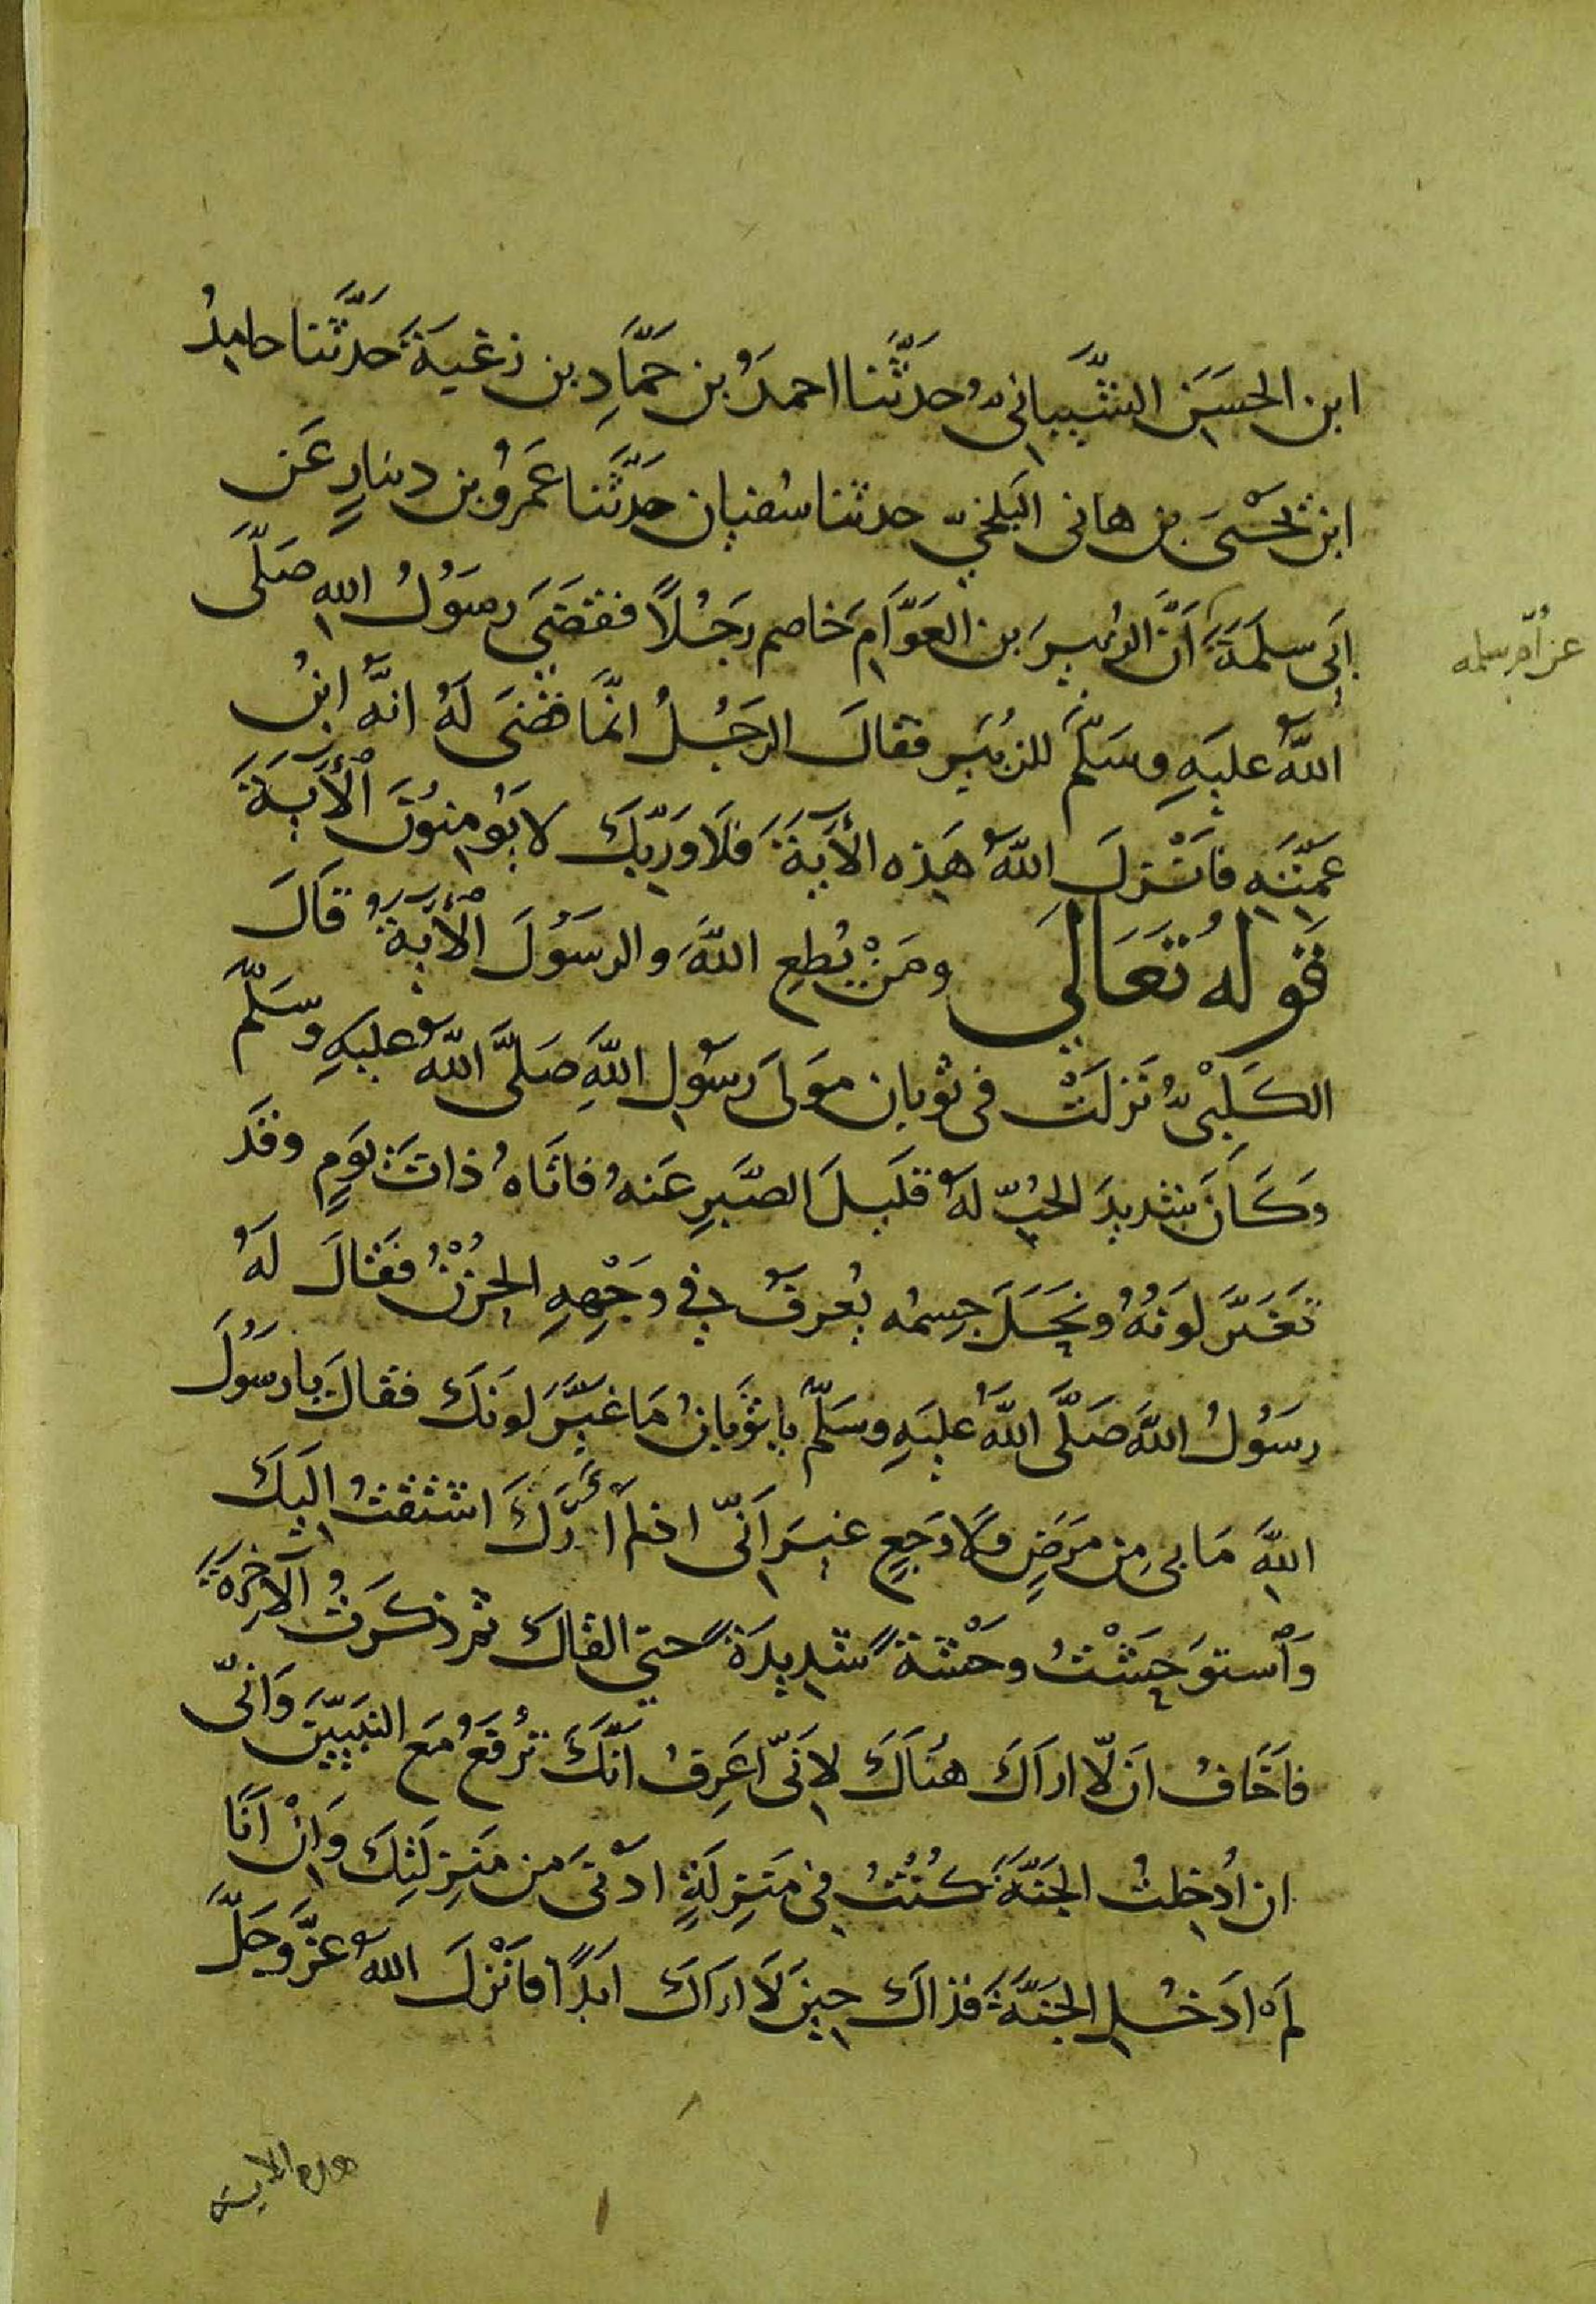 ابن الحسَين الشَّيبانىُّ حدَّثَنا احمدُ بن حَمَّادِ بن زغيَةَ حَدَّثَنا حامِدُ
ابن يَحْيىَ بن هانى البَلخىّ حدثنا سُفيان حدَّثَنا عَمرُو بن دينارٍ عَن
ابَى سلمَةَ اَنَّ الزُبيرَ بن العَوَّامِ خاصم رَجُلاً فقضَى رسَوُلُ اللهِ صَلَّى
عن اُمّ سلمه
اللهُ عليَهِ وسَلّمَ للزُبيَرِ فقالَ الرجَلُ انَّمَا قضَى لَهُ انهَُّ ابنُ
عَمَّتِهِ فاَنْزلَ اللهُ هَذِه الأيَةَ فَلاَ وَرَبِّكَ لا يَؤُمِنوُنَ الْأيَةَ
قَولهُ تعَالَى ومَنْ يُطِعِ اللهَ والرسَوُلَ الْأيَةُ قاَلَ
الكَلبْىُّ نَزلَتْ فى ثوبان موَلىَ رسَوُلِ اللهِ صَلَّى اللهُ عليَهِ وسَلّم
وَكَانَ شديدَ الحُبِّ لهُ قليَلَ الصَّبرِ عَنهُ فاتَاهُ ذاتَ يَومٍ وقَد
تَغَيَّر لَونهُُ ونَحَلَ جِسمُه يُعرفُ فِى وجَهِْهِ الحُزْنُ فقَالَ لَهُ
رسَوُلُ اللهِ صَلَّى اللهُ عليَهِ وسَلّم يا ثَوبانُ مَا غيَّرَ لونَكَ فقالَ يا رسَوُلَ
اللهِ مَا بىِ مِن مرَضٍ ولَا وَجعٍ غيرَ اَنّى اذا لمْ أرَكَ اشتقتُ اليَكَ
وَاْستوَحَشْتُ وحَشْةً شدِيدَةً حتى القاكَ ثم ذكَرتُ الآخِرَةَ
فاَخَافُ ان لّا اراَكَ هنُاَكَ لِانَّى اَعَرِفُ انَّكَ ترُفَعُ مَعَ النَّبيّيَن وَانّى
ان اُدخِلتُ الجَنَّةَ كُنتُ فِى مَنزِلَةٍ ادْنىَ مِن مَنزِلَتِكَ وَانْ اَنَا
لمَْ ادَخُلِ الجنَّةَ فذاكَ حِينَ لَا اراَكَ ابَدًا فاَنْزلَ اللهُ عزَّ وَجَلَّ
هذه الاية